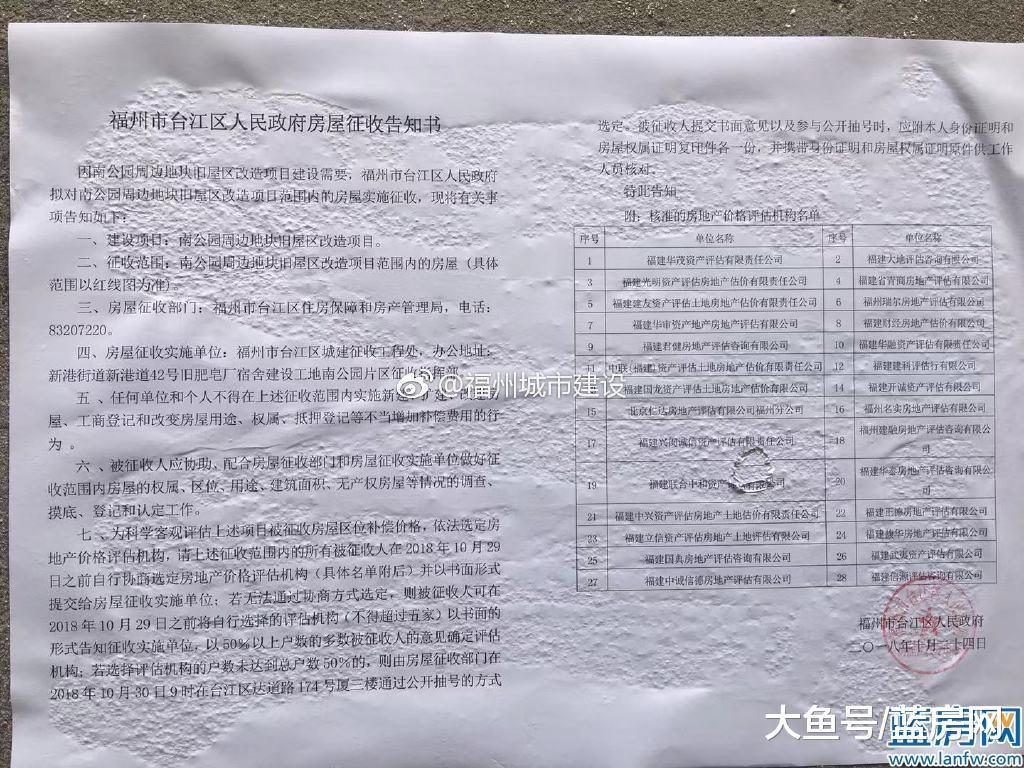 福州市台江区人民政府房屋征收告知书
因南公园周边地块旧屋区改造项目建设需要，福州市台江区人民政府
拟对南公园周边地块旧屋区改造项目范围内的房屋实施征收，现将有关事
项告知如下：
一、建设项目：南公园周边地块旧屋区改造项目。
二、征收范围：南公园周边地块旧屋区改造项目范围内的房屋（具体
范围以红线图为准）。
三、房屋征收部门：福州市台江区住房保障和房产管理局，电话：
83207220。
四、房屋征收实施单位：福州市台江区城建征收工程处，办公地址：
新港街道新港道42号旧肥皂厂宿舍建设工地南公园片区征收指挥部。
五、任何单位和个人不得在上述征收范围内实施新建、扩建、改建房
屋、工商登记和改变房屋用途、权属、抵押登记等不当增加补偿费用的行
为。
六、被征收人应协助、配合房屋征收部门和房屋征收实施单位做好征
收范围内房屋的权属、区位、用途、建筑面积、无产权房屋等情况的调查、
摸底、登记和认定工作。
七、为科学客观评估上述项目被征收房屋区位补偿价格，依法选定房
地产价格评估机构，请上述征收范围内的所有被征收人在2018年10月29
日之前自行协商选定房地产价格评估机构（具体名单附后）并以书面形式
提交给房屋征收实施单位；若无法通过协商方式选定，则被征收人可在
2018年10月29日之前将自行选择的评估机构（不得超过五家）以书面的
形式告知征收实施单位，以50%以上户数的多数被征收人的意见确定评估
机构；若选择评估机构的户数未达到总户数50%的，则由房屋征收部门在
2018年10月30日9时在台江区达道路174号厦三楼通过公开抽号的方式
选定。被征收人提交书面意见以及参与公开抽号时，应附本人身份证明和
房屋权属证明复印件各一份，并携带身份证明和房屋权属证明原件供工作
人员核对。
特此告知
附：核准的房地产价格评估机构名单
序号 单位名称 序号 单位名称
1 福建华茂资产评估有限责任公司 2 福建大地评估咨询有限公司
3 福建光明资产评估房地产估价有限责任公司 4 福建省青商房地产评估有限公司
5 福建建友资产评估土地房地产估价有限责任公司 6 福州瑞尔房地产评估有限公司
7 福建华审资产地产房地产评估有限公司 8 福建财经房地产估价有限公司
9 福建君健房地产评估咨询有限公司 10 福建华融资产评估有限责任公司
11 中联（福建）资产评估土地房地产估价有限责任公司 12 福建建科评估行有限公司
13 福建国龙资产评估土地房地产估价有限公司 14 福建开诚资产评估有限公司
15 北京仁达房地产评估有限公司福州分公司 16 福州名实房地产评估有限公司
17 福建兴闽诚信资产评估有限责任公司 18 福州建融房地产评估咨询有限公
司
19 福建联合中和资产 有限公司 20 福建华泰房地产评估咨询有限公
司
21 福建中兴资产评估房地产土地估价有限责任公司 22 福建正德房地产评估有限公司
23 福建立信资产评估房地产土地评估有限公司 24 福建康华房地产评估有限公司
25 福建国典房地产评估咨询有限公司 26 福建武夷资产评估有限公司
27 福建中诚信德房地产评估有限公司 28 福建信源评估咨询有限公司
福州市台江区人民政府
二〇一八年十月二十四日
@福州城市建设
大鱼号/蓝房网
蓝房网
www.lanfw.com